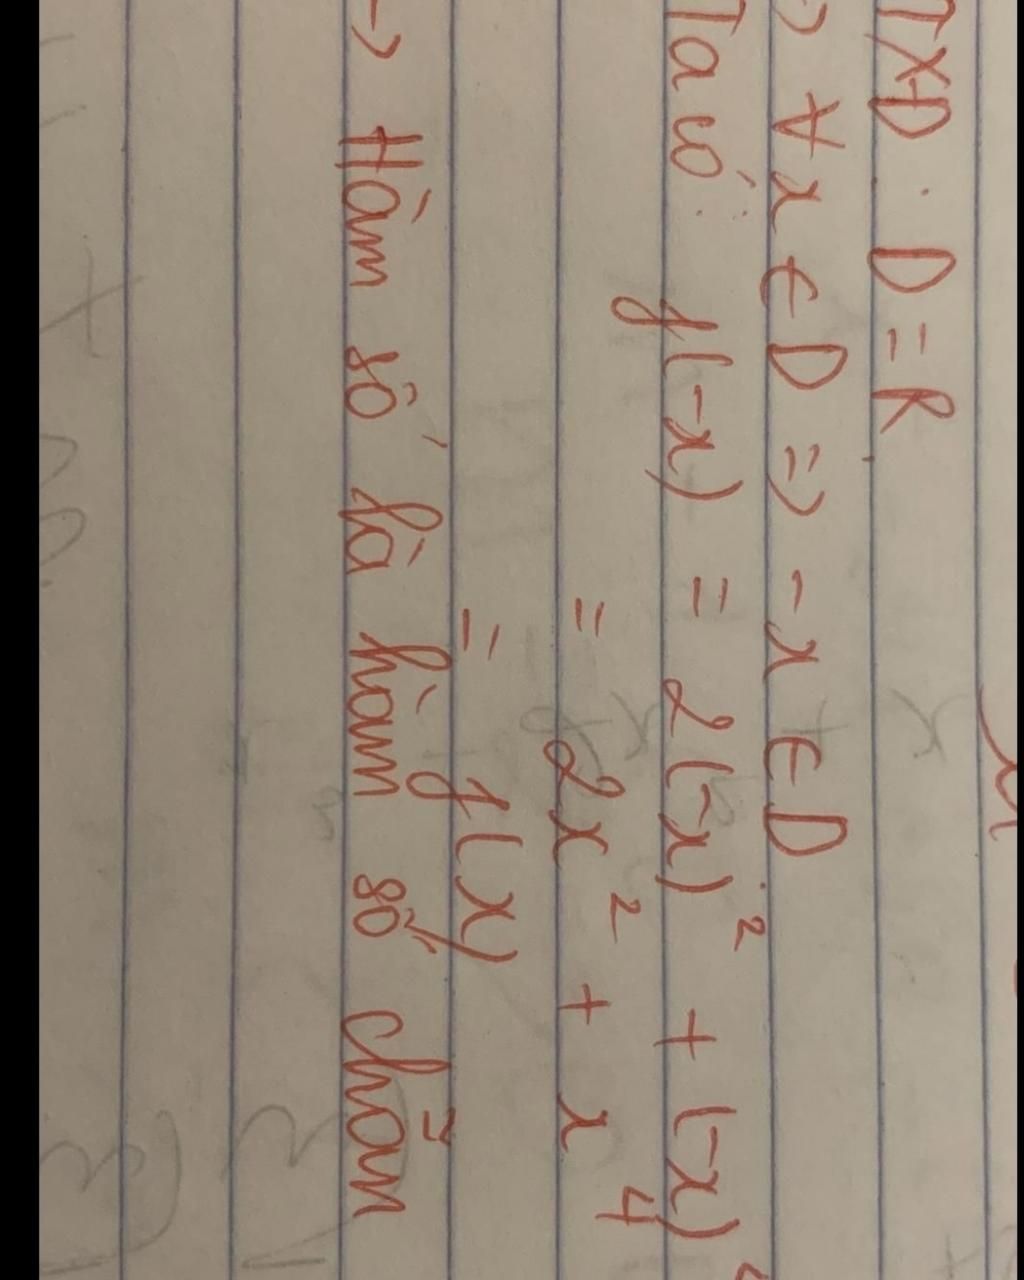 TXD : D = R
=> ∀x ∈ D => -x ∈ D
Ta có : f(-x) = 2(-x)² + (-x)⁴
= 2x² + x⁴
= f(x)
-> Hàm số là hàm số chẵn